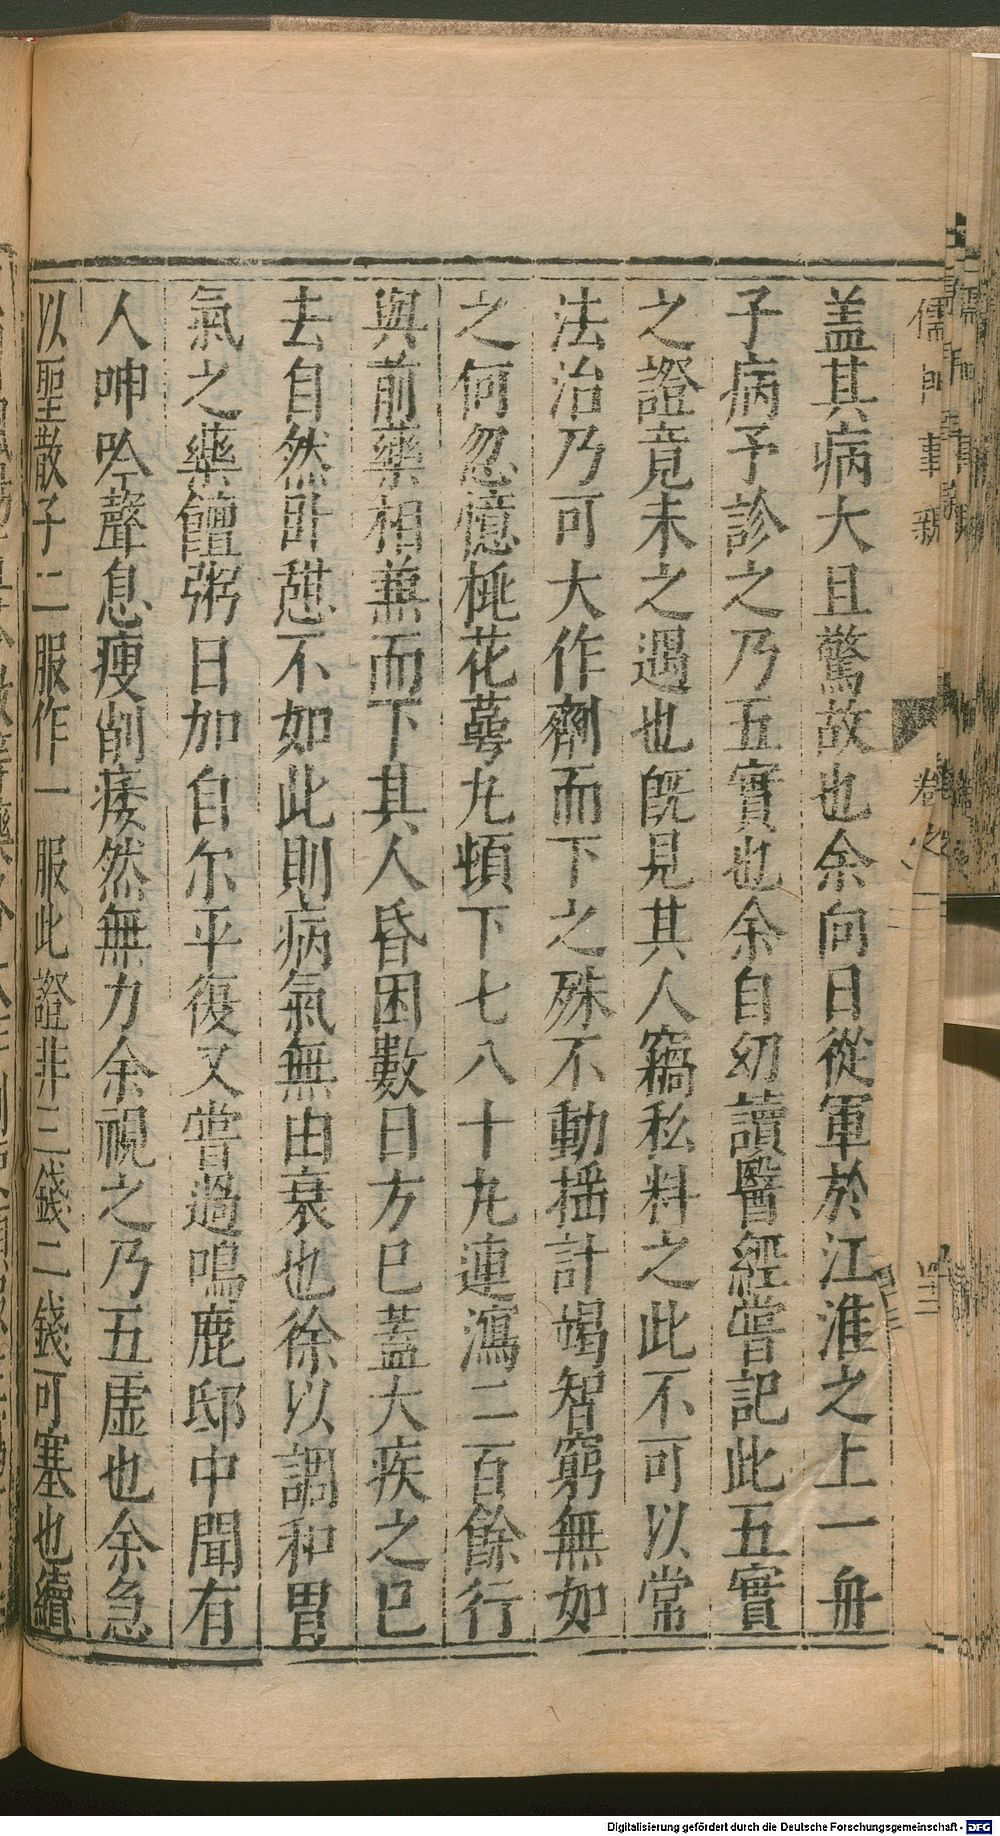 儒門事親
盖其病大且驚故也余向日從軍於江淮之上一舟
子病予診之乃五實也余自幼讀醫經嘗記此五實
之證竟未之遇也旣見其人竊私料之此不可以常
法治乃可大作劑而下之殊不動摇計竭智窮無如
之何忽憶桃花萼九頓下七八十九連瀉二百餘行
與前藥相兼而下其人昏困數日方巳蓋大疾之巳
去自然卧憇不如此則病氣無由衰也徐以調和胃
氣之藥饘粥日加自尔平復又嘗過鳴鹿邸中聞有
人呻吟聲息瘦削痿然無力余視之乃五虛也余急
以聖散子二服作一服此證非三錢二錢可塞也續
Digitalisierung gefördert durch die Deutsche Forschungsgemeinschaft - DFG